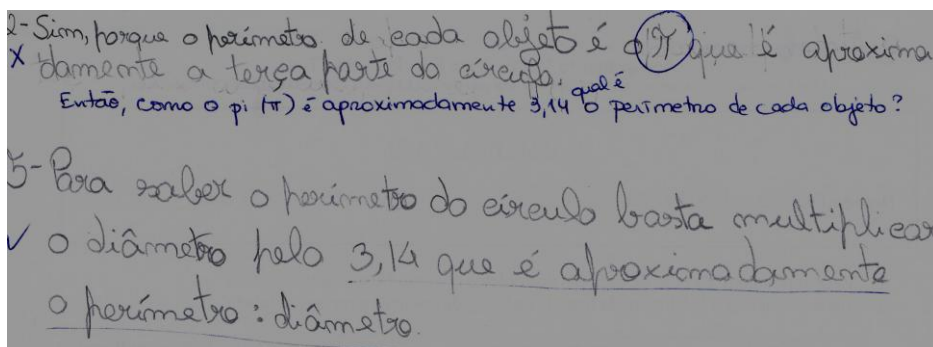 2-Sim, porque o perímetro de cada objeto é o π que é aproxima
X damente a terça parte do círculo.
qual é
Então, como o pi (π) é aproximadamente 3,14 o perímetro de cada objeto?
5-Para saber o perímetro do círculo basta multiplicar
✓ o diâmetro pelo 3,14 que é aproximadamente
o perímetro : diâmetro.